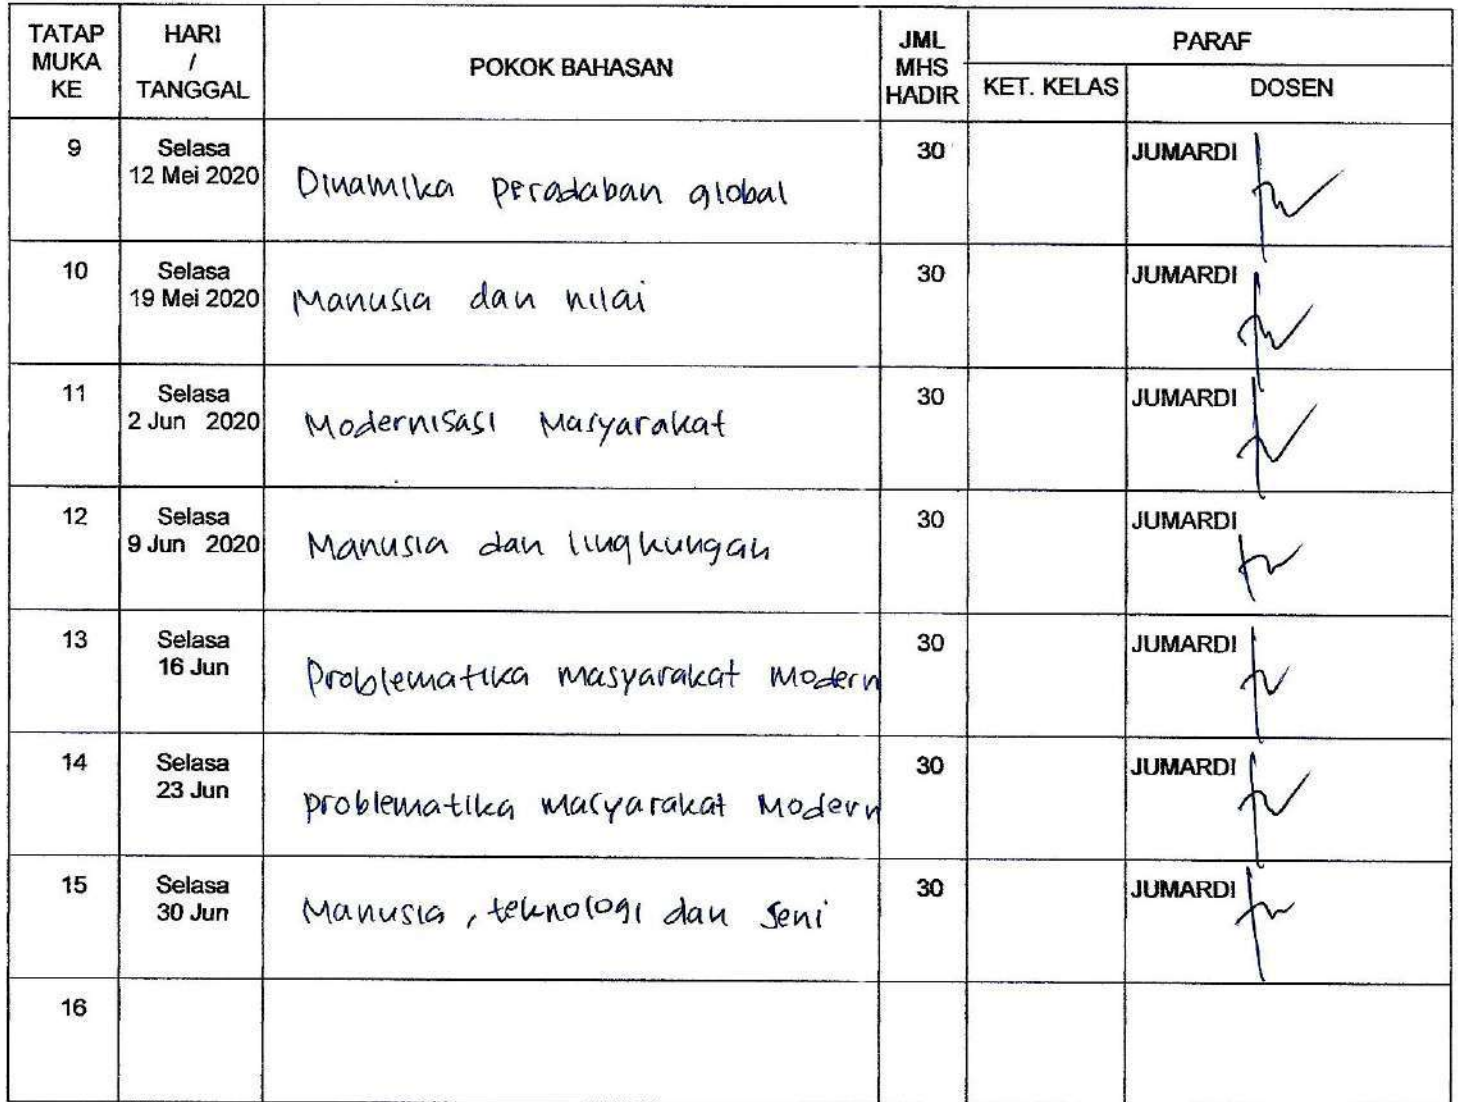 TATAP MUKA KE
HARI / TANGGAL
POKOK BAHASAN
JML MHS HADIR
PARAF
KET. KELAS
DOSEN
9
Selasa
12 Mei 2020
Dinamika peradaban global
30
JUMARDI
10
Selasa
19 Mei 2020
Manusia dan nilai
30
JUMARDI
11
Selasa
2 Jun 2020
Modernisasi Masyarakat
30
JUMARDI
12
Selasa
9 Jun 2020
Manusia dan lingkungan
30
JUMARDI
13
Selasa
16 Jun
Problematika masyarakat Modern
30
JUMARDI
14
Selasa
23 Jun
problematika masyarakat Modern
30
JUMARDI
15
Selasa
30 Jun
Manusia, teknologi dan seni
30
JUMARDI
16